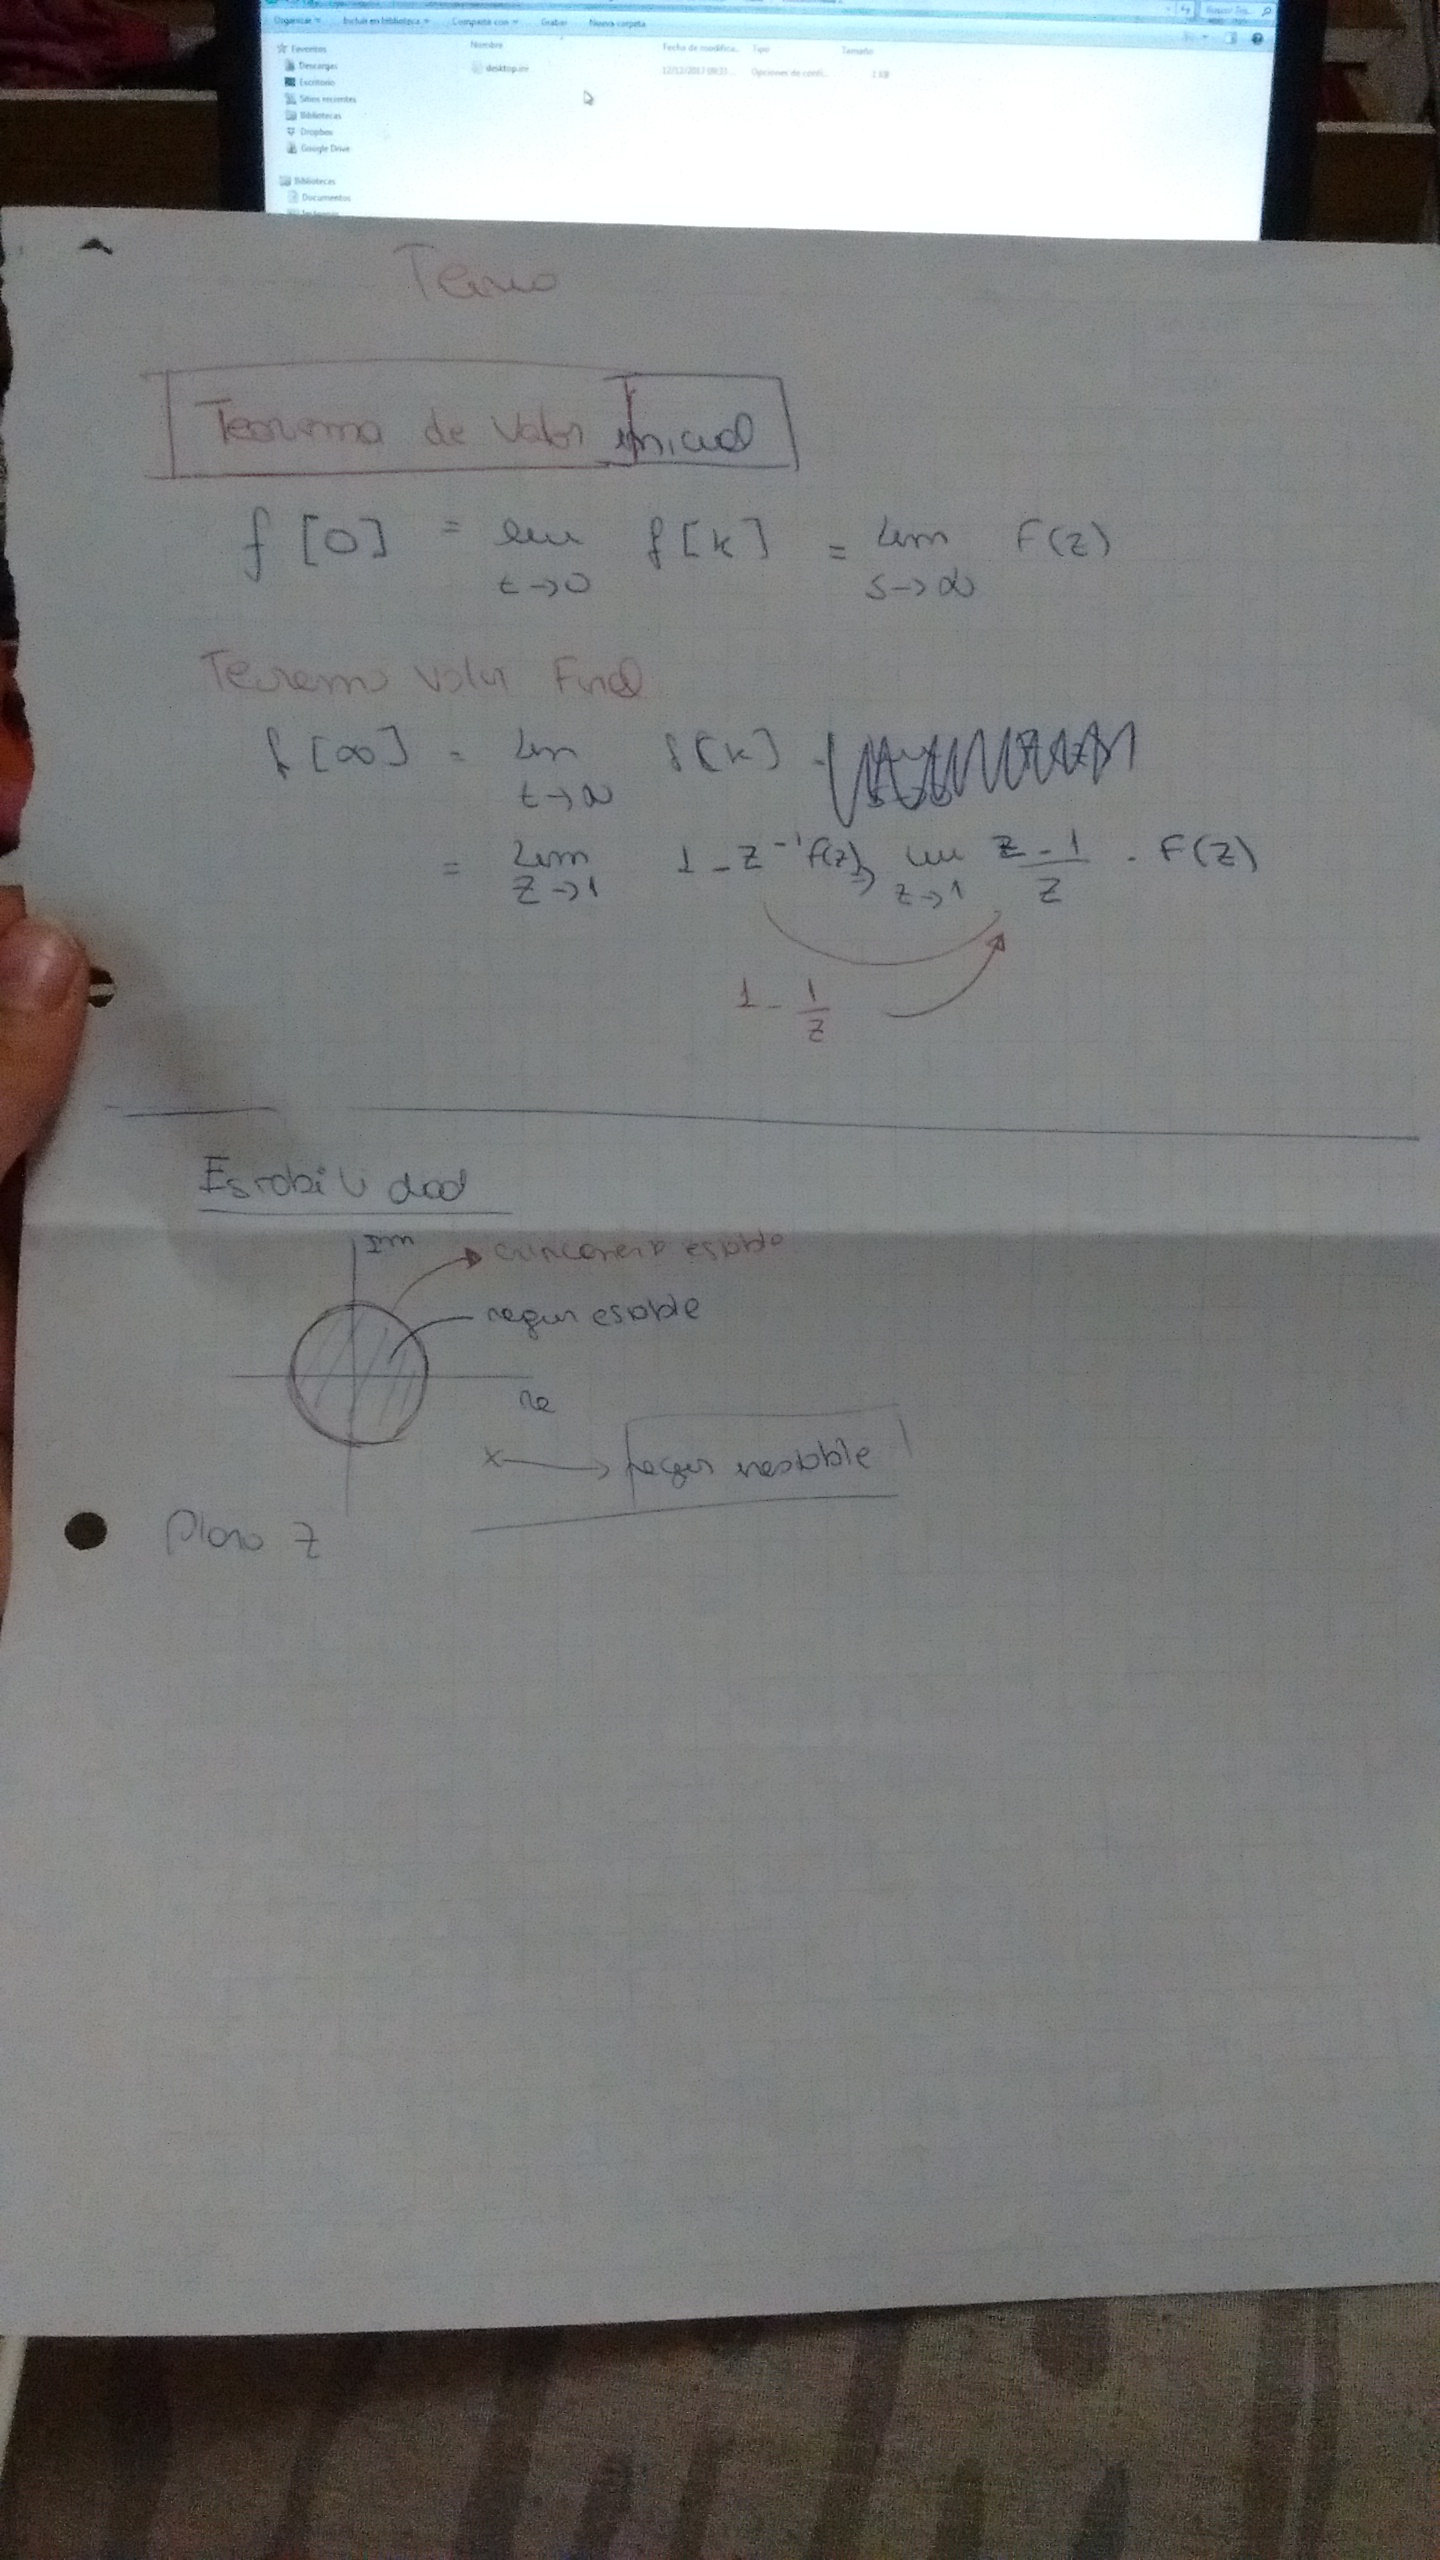 Organizar Incluir en biblioteca Compartir con Grabar Nueva carpeta
Favoritos
Descargas
Escritorio
Sitios recientes
Bibliotecas
Dropbox
Google Drive
Bibliotecas
Documentos
Nombre Fecha de modifica... Tipo Tamaño
desktop.ini 12/12/2017 Opciones de confi... 1 KB
Teorema de Valor Inicial
f[0] = lim t→0 f[k] = lim s→∞ F(z)
Teorema Valor Final
f[∞] = lim t→∞ f[k]
= lim z→1 1-z⁻¹ F(z) lim z→1 z-1/z · F(z)
1 - 1/z
Estabilidad
Im
estable
region estable
Re
x → region inestable
Plano Z